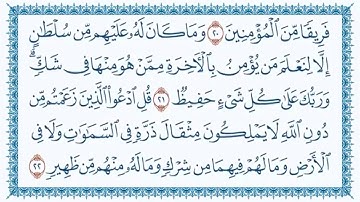 فَرِيقًا مِّنَ الْمُؤْمِنِينَ ٢٠ وَمَا كَانَ لَهُ عَلَيْهِم مِّن سُلْطَٰنٍ
إِلَّا لِنَعْلَمَ مَن يُؤْمِنُ بِالْآخِرَةِ مِمَّنْ هُوَ مِنْهَا فِي شَكٍّ ۗ
وَرَبُّكَ عَلَىٰ كُلِّ شَيْءٍ حَفِيظٌ ٢١ قُلِ ادْعُوا الَّذِينَ زَعَمْتُم مِّن
دُونِ اللَّهِ لَا يَمْلِكُونَ مِثْقَالَ ذَرَّةٍ فِي السَّمَٰوَٰتِ وَلَا فِي
الْأَرْضِ وَمَا لَهُمْ فِيهِمَا مِن شِرْكٍ وَمَا لَهُ مِنْهُم مِّن ظَهِيرٍ ٢٢